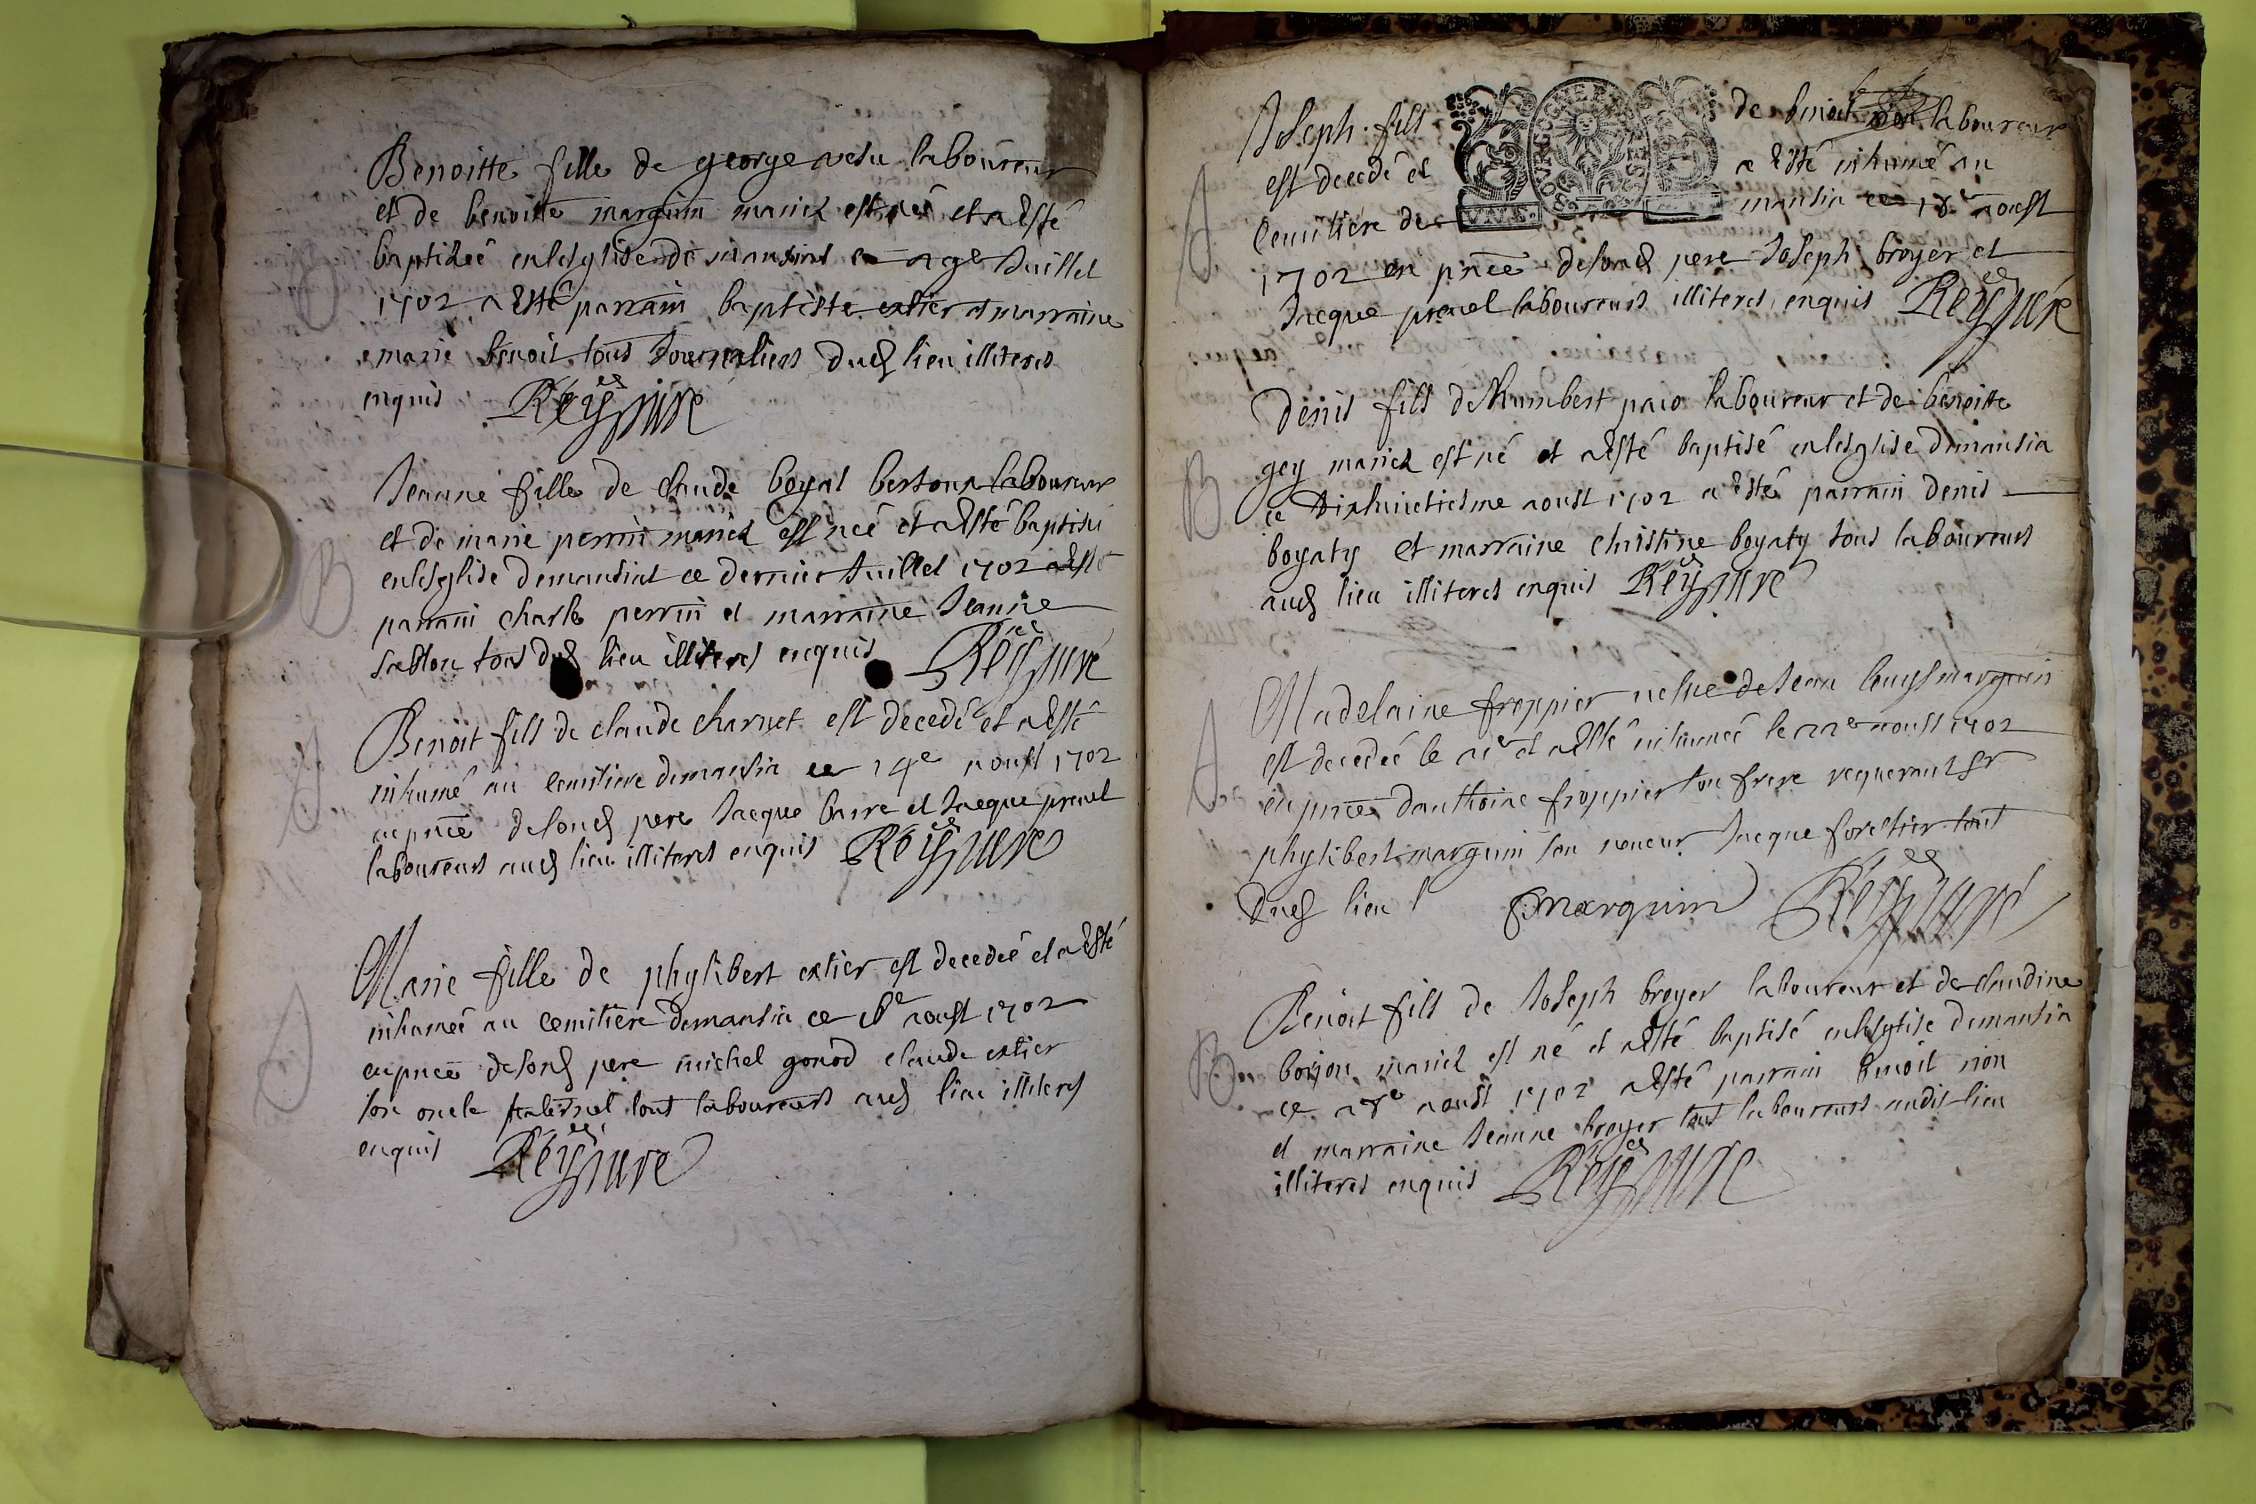 Benoitte fille de george vesu laboureur
et de benoitte marguin mariez est née et a esté
baptizeé enlesglise de mansiat ce 29e Juillet
1702 a esté parrain baptiste extier et marraine
marie benoit tous Journaliers dud lieu illiteres
enquis Reyssure
B
Jeanne fille de claude boyat bertoux laboureur
et de marie perrin mariez est neé et a esté baptisée
enlesglise demansiat ce dernier Juillet 1702 a esté
parrain charle perrin et marraine Jeanne
sablon tous dud lieu illiteres enquis Reyssure
Benoit fils de claude charvet est decedé et a esté
inhumé au cemitiere demansia ce 14e aoust 1702
en pnce desond pere Jacque buire et Jacque preuel
laboureurs aud lieu illiteres enquis Reyssure
Marie fille de phylibert extier est decedeé et a esté
inhumeé au cemitiere demansia ce aoust 1702
en pnce desond pere michel gonod claude extier
son oncle paternel tous laboureurs aud lieu illiteres
enquis Reyssure
Joseph fils de benoit laboureur
BOURGOGNE
est decedé et a esté inhumé au
cemitiere de mansia ce 18e aoust
1702 en pnce desond pere Joseph broyer et
Jacque preuel laboureurs illiteres enquis Reyssure
denis fils de humbert paio laboureur et de benoitte
gey mariez est né et a esté baptisé enlesglise demansia
B
ce dixhuictiesme aoust 1702 a esté parrain denis
boyaty et marraine christine boyaty tous laboureurs
aud lieu illiteres enquis Reyssure
Madelaine froppier vefue de Jean louys marguin
est decedeé le 21e et a esté inhumeé le 22e aoust 1702
en pnce danthoine froppier son frere requerant et
phylibert marguin son neueur Jacque forestier tous
dud lieu P marguin Reyssure
Benoit fils de Joseph broyer laboureur et de claudine
borjon mariez est né et a esté baptisé enlesglise demansia
B
ce 28e aoust 1702 a esté parrain benoit nion
et marraine Jeanne broyer tous laboureurs audit lieu
illiteres enquis Reyssure